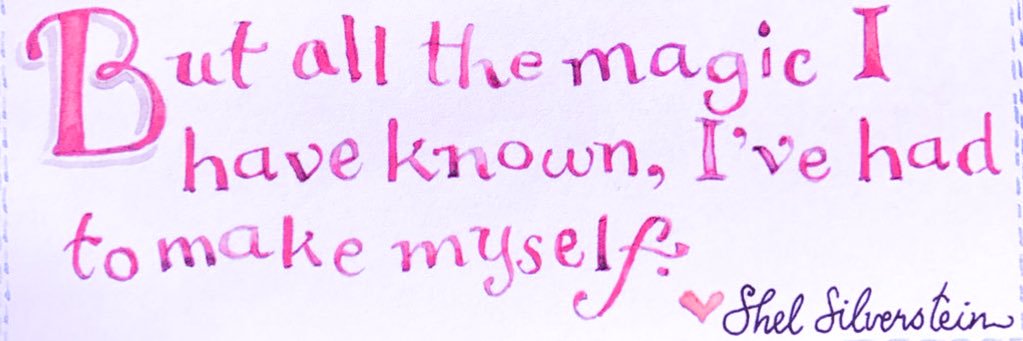 But all the magic I
have known, I've had
to make myself.
Shel Silverstein